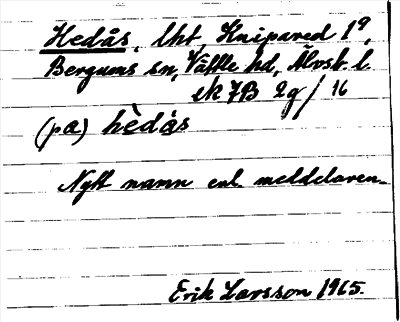 Hedås, lht Knipared 1⁹,
Bergums sn, Vättle hd, Älvsb. l.
ek 7B 2g/16
(pa) hèdås
Nytt namn enl. meddelaren.
Erik Larsson 1965.